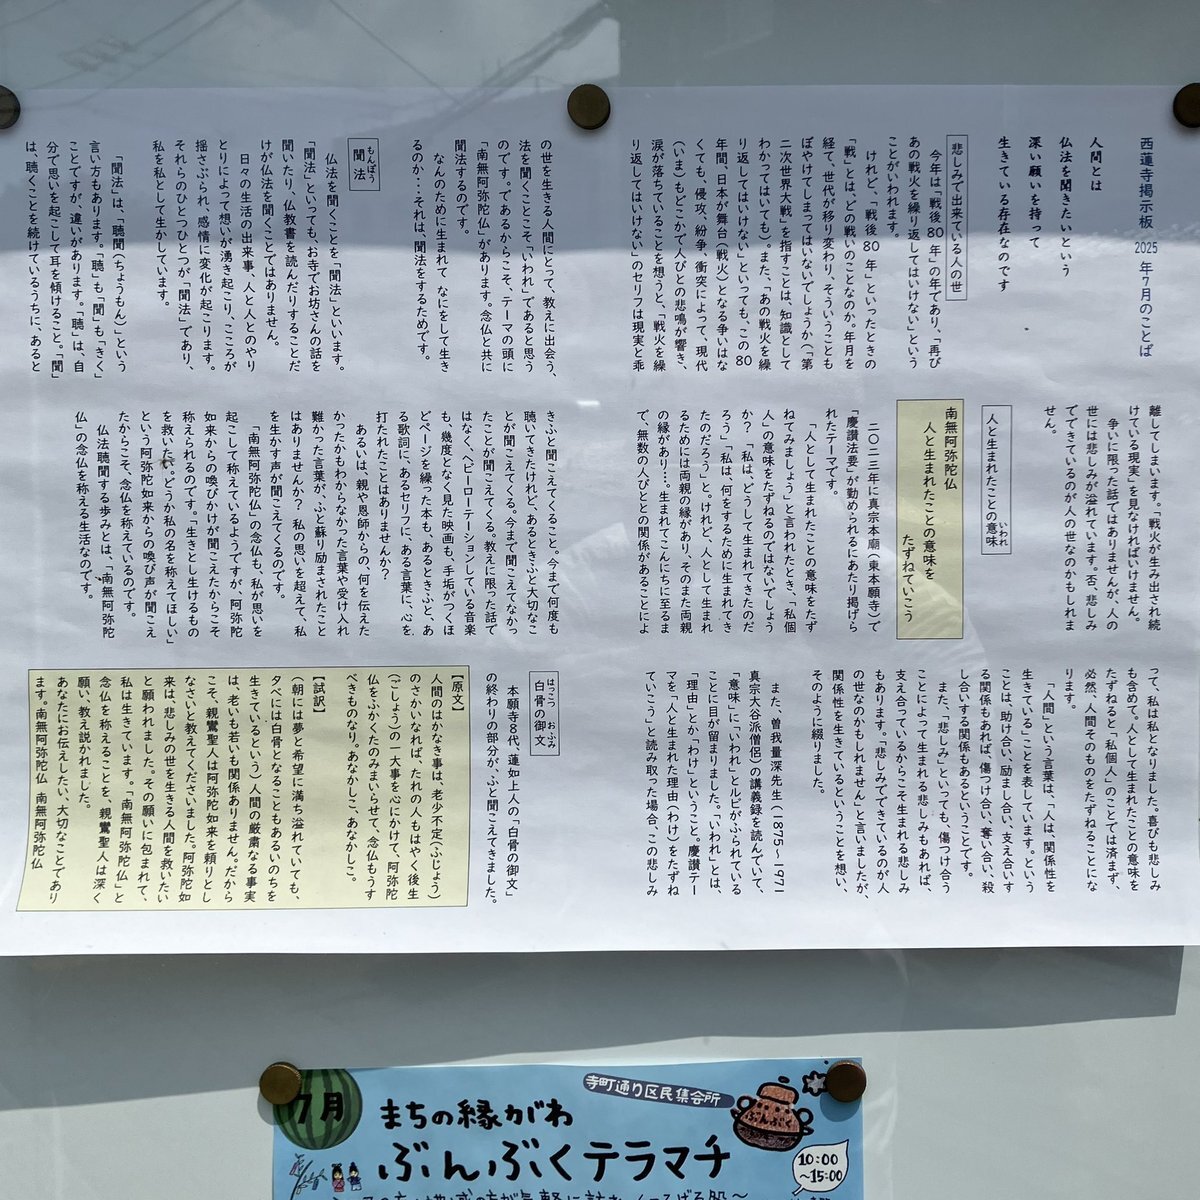 西蓮寺掲示板 2025年7月のことば
人間とは
仏法を聞きたいという
深い願いを持って
生きている存在なのです
悲しみで出来ている人の世
今年は「戦後80年」の年であり、「再び
あの戦火を繰り返してはいけない」という
ことがいわれます。
けれど、「戦後80年」といったときの
「戦」とは、どの戦いのことなのか。年月を
経て、世代が移り変わり、そういうことも
ぼやけてしまってはいないでしょうか(「第
二次世界大戦」を指すことは、知識として
わかってはいても)。また、「あの戦火を繰
り返してはいけない」といっても、この80
年間、日本が舞台(戦火)となる争いはな
くても、侵攻、紛争、衝突によって、現代
(いま)もどこかで人びとの悲鳴が響き、
涙が落ちていることを想うと、「戦火を繰
り返してはいけない」のセリフは現実と乖
離してしまいます。「戦火が生み出され続
けている現実」を見なければいけません。
争いに限った話ではありませんが、人の
世には悲しみが溢れています。否、悲しみ
でできているのが人の世なのかもしれま
せん。
人と生まれたことの意味
いわれ
南無阿弥陀仏
人と生まれたことの意味を
たずねていこう
二〇二三年に真宗本廟(東本願寺)で
「慶讃法要」が勤められるにあたり掲げら
れたテーマです。
「人として生まれたことの意味をたず
ねてみましょう」と言われたとき、「私個
人」の意味をたずねるのではないでしょう
か?「私は、どうして生まれてきたのだ
ろう」「私は、何をするために生まれてき
たのだろう」と。けれど、人として生まれ
るためには両親の縁があり、そのまた両親
の縁があり…。生まれてこんにちに至るま
で、無数の人びととの関係があることによ
って、私は私となりました。喜びも悲しみ
も含めて。人として生まれたことの意味を
たずねると「私個人」のことでは済まず、
必然、人間そのものをたずねることにな
ります。
「人間」という言葉は、「人は、関係性を
生きている」ことを表しています。という
ことは、助け合い、励まし合い、支え合いす
る関係もあれば、傷つけ合い、奪い合い、殺
し合いする関係もあるということです。
また、「悲しみ」といっても、傷つけ合う
ことによって生まれる悲しみもあれば、
支え合っているからこそ生まれる悲しみ
もあります。「悲しみでできているのが人
の世なのかもしれません」と言いましたが、
関係性を生きているということを想い、
そのように綴りました。
また、曽我量深先生(1875〜1971
真宗大谷派僧侶)の講義録を読んでいて、
「意味」に「いわれ」とルビがふられている
ことに目が留まりました。「いわれ」とは、
「理由」とか「わけ」ということ。慶讃テー
マを「人と生まれた理由(わけ)をたずね
ていこう」と読み取った場合、この悲しみ
の世を生きる人間にとって、教えに出会う、
法を聞くことこそ「いわれ」であると思う
のです。であるからこそ、テーマの頭に
「南無阿弥陀仏」があります。念仏と共に
聞法するのです。
なんのために生まれて なにをして生き
るのか・・・それは、聞法をするためです。
聞法
もんぽう
仏法を聞くことを「聞法」といいます。
「聞法」といっても、お寺でお坊さんの話を
聞いたり、仏教書を読んだりすることだ
けが仏法を聞くことではありません。
日々の生活の出来事、人と人とのやり
とりによって想いが湧き起こり、こころが
揺さぶられ、感情に変化が起こります。
それらのひとつひとつが「聞法」であり、
私を私として生かしています。
「聞法」は、「聴聞(ちょうもん)」という
言い方もあります。「聴」も「聞」も「きく」
ことですが、違いがあります。「聴」は、自
分で思いを起こして耳を傾けること。「聞」
は、聴くことを続けているうちに、あると
きふと聞こえてくること。今まで何度も
聴いてきたけれど、あるときふと大切なこ
とが聞こえてくる。今まで聞こえてなかっ
たことが聞こえてくる。教えに限った話で
はなく、ヘビーローテーションしている音楽
も、幾度となく見た映画も、手垢がつくほ
どページを繰った本も、あるときふと、あ
る歌詞に、あるセリフに、ある言葉に、心を
打たれたことはありませんか?
あるいは、親や恩師からの、何を伝えた
かったかもわからなかった言葉や受け入れ
難かった言葉が、ふと蘇り励まされたこと
はありませんか? 私の思いを超えて、私
を生かす声が聞こえてくるのです。
「南無阿弥陀仏」の念仏も、私が思いを
起こして称えているようですが、阿弥陀
如来からの喚びかけが聞こえたからこそ
称えられるのです。「生きとし生けるもの
を救いたい。どうか私の名を称えてほしい」
という阿弥陀如来からの喚び声が聞こえ
たからこそ、念仏を称えているのです。
仏法聴聞する歩みとは、「南無阿弥陀
仏」の念仏を称える生活なのです。
白骨の御文
はっこつ おふみ
本願寺8代、蓮如上人の「白骨の御文」
の終わりの部分が、ふと聞こえてきました。
【原文】
人間のはかなき事は、老少不定(ふじょう)
のさかいなれば、たれの人もはやく後生
(ごしょう)の一大事を心にかけて、阿弥陀
仏をふかくたのみまいらせて、念仏もうす
べきものなり。あなかしこ、あなかしこ。
【試訳】
(朝には夢と希望に満ち溢れていても、
夕べには白骨となることもあるいのちを
生きているという)人間の厳粛なる事実
は、老いも若いも関係ありません。だから
こそ、親鸞聖人は阿弥陀如来を頼りとし
なさいと教えてくださいました。阿弥陀如
来は、悲しみの世を生きる人間を救いたい
と願われました。その願いに包まれて、
私は生きています。「南無阿弥陀仏」と
念仏を称えることを、親鸞聖人は深く
願い、教え説かれました。
あなたにお伝えしたい、大切なことであり
ます。南無阿弥陀仏 南無阿弥陀仏
7月
まちの縁がわ
ぶんぶくテラマチ
寺町通り区民集会所
ぶんぶく
10:00
〜15:00